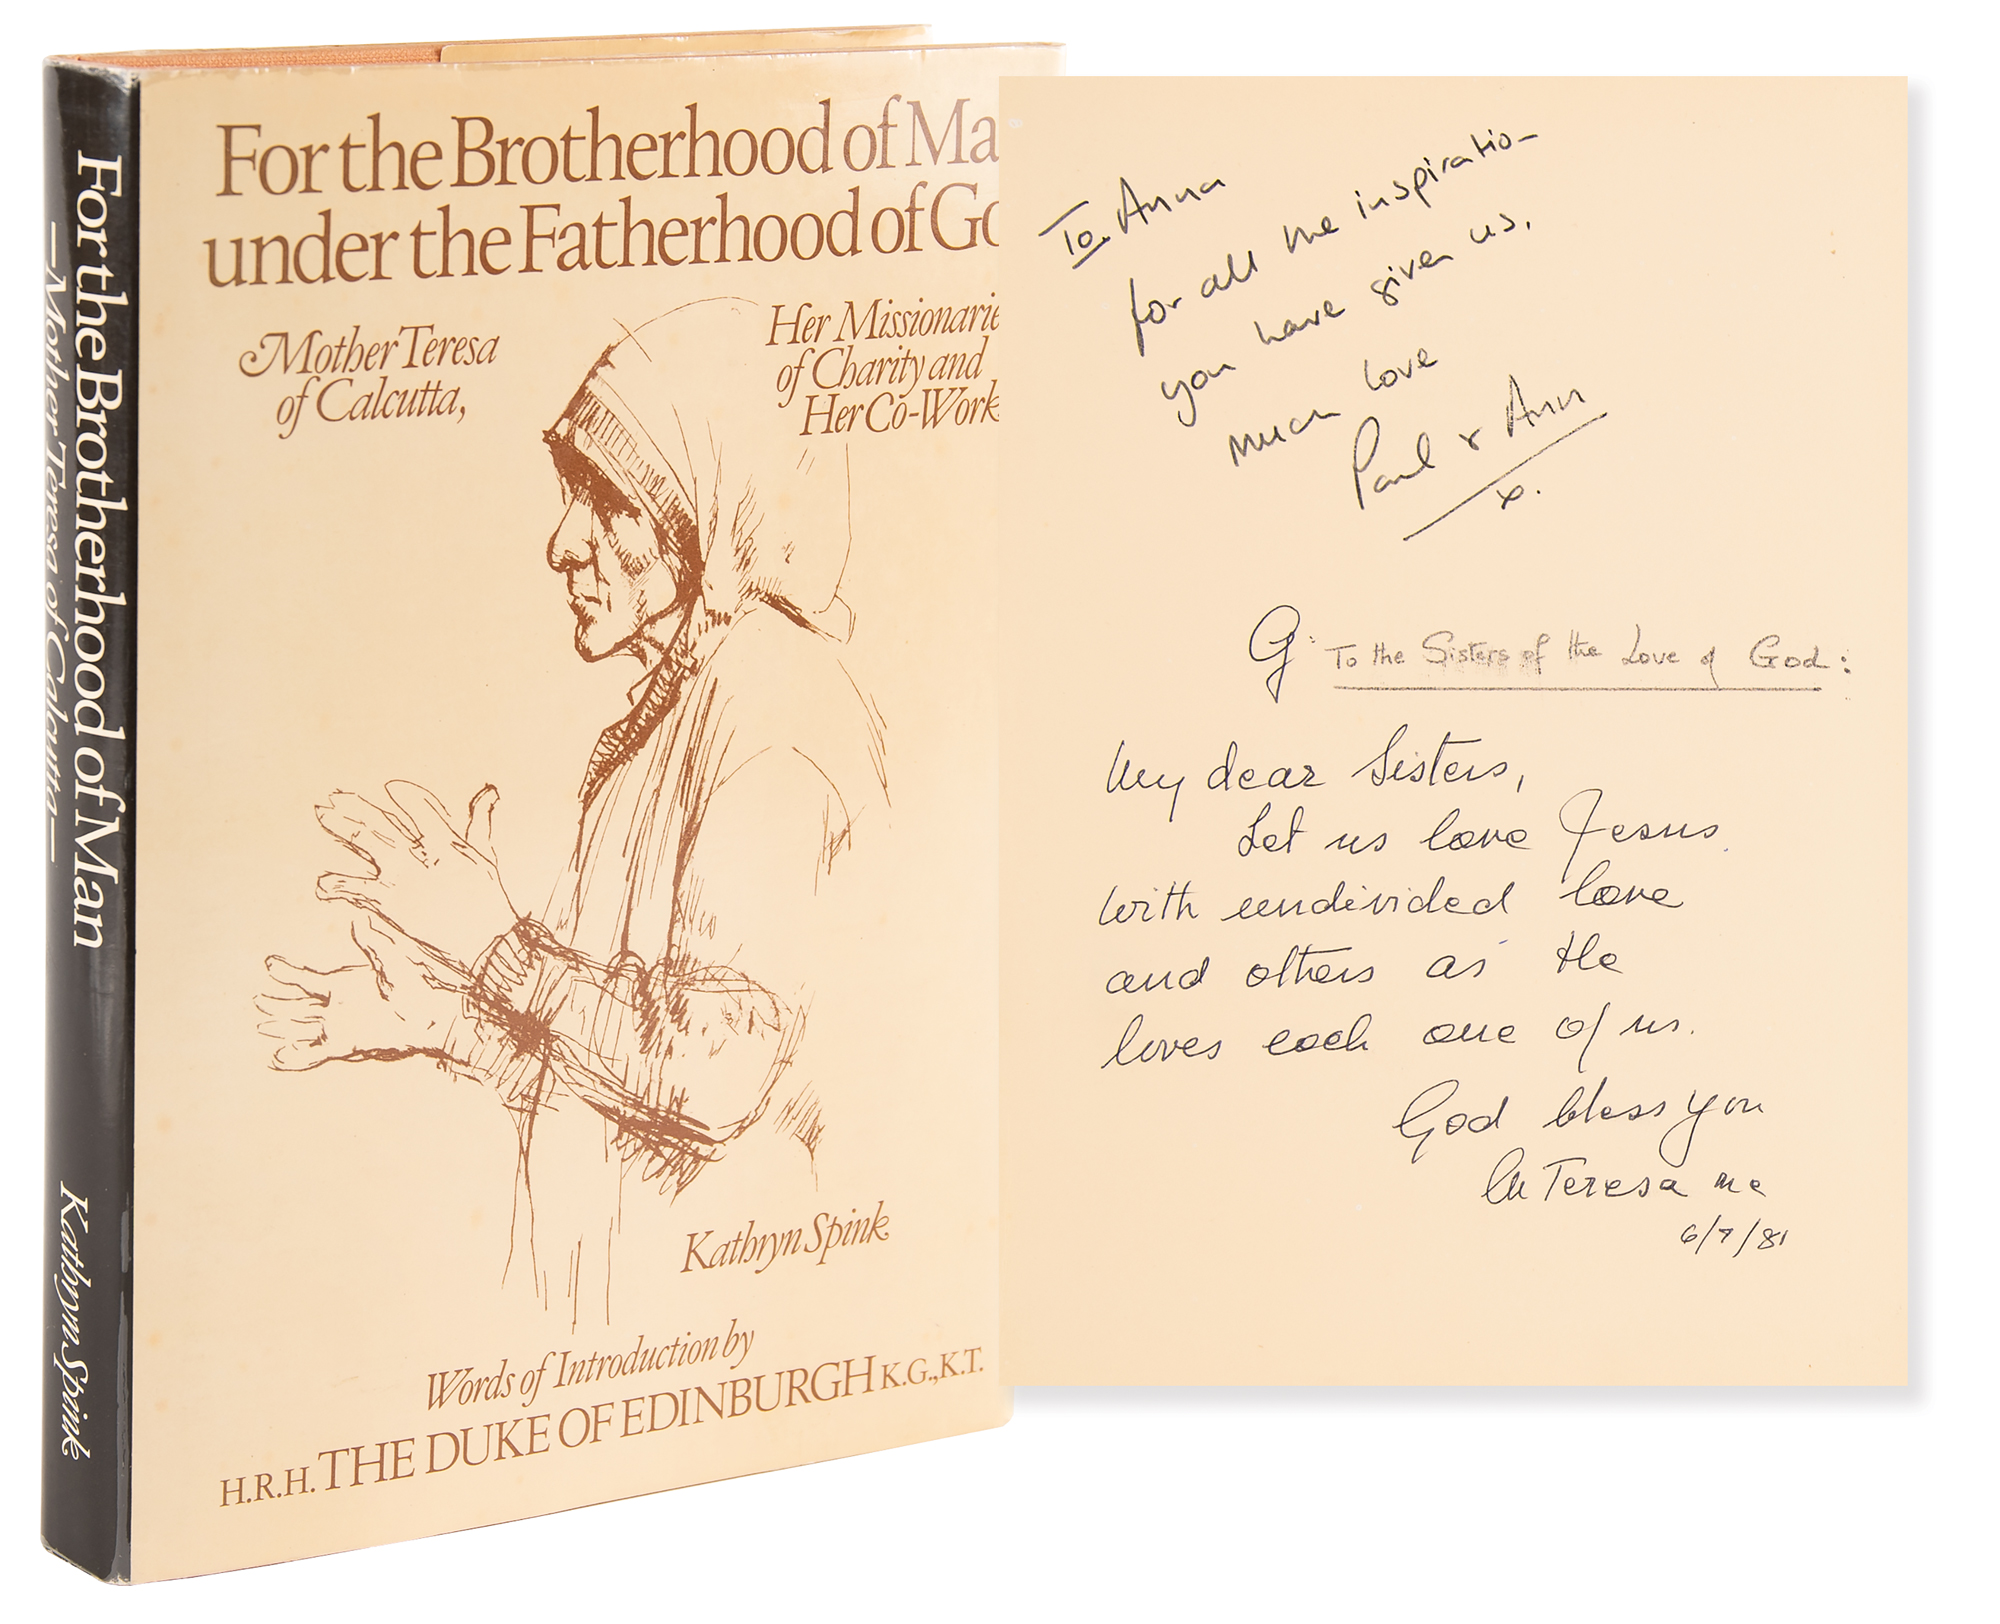 For the Brotherhood of Man
—Mother Teresa of Calcutta—
Kathryn Spink
For the Brotherhood of Ma
under the Fatherhood of Go
Mother Teresa
of Calcutta,
Her Missionarie
of Charity and
Her Co-Work
Kathryn Spink
Words of Introduction by
H.R.H. THE DUKE OF EDINBURGH K.G., K.T.
To Anna
for all the inspiration
you have given us.
much love
Paul & Ann
x.
G: To the Sisters of the Love of God:
My dear Sisters,
Let us love Jesus
with undivided love
and others as He
loves each one of us.
God bless you
M Teresa mc
6/7/81